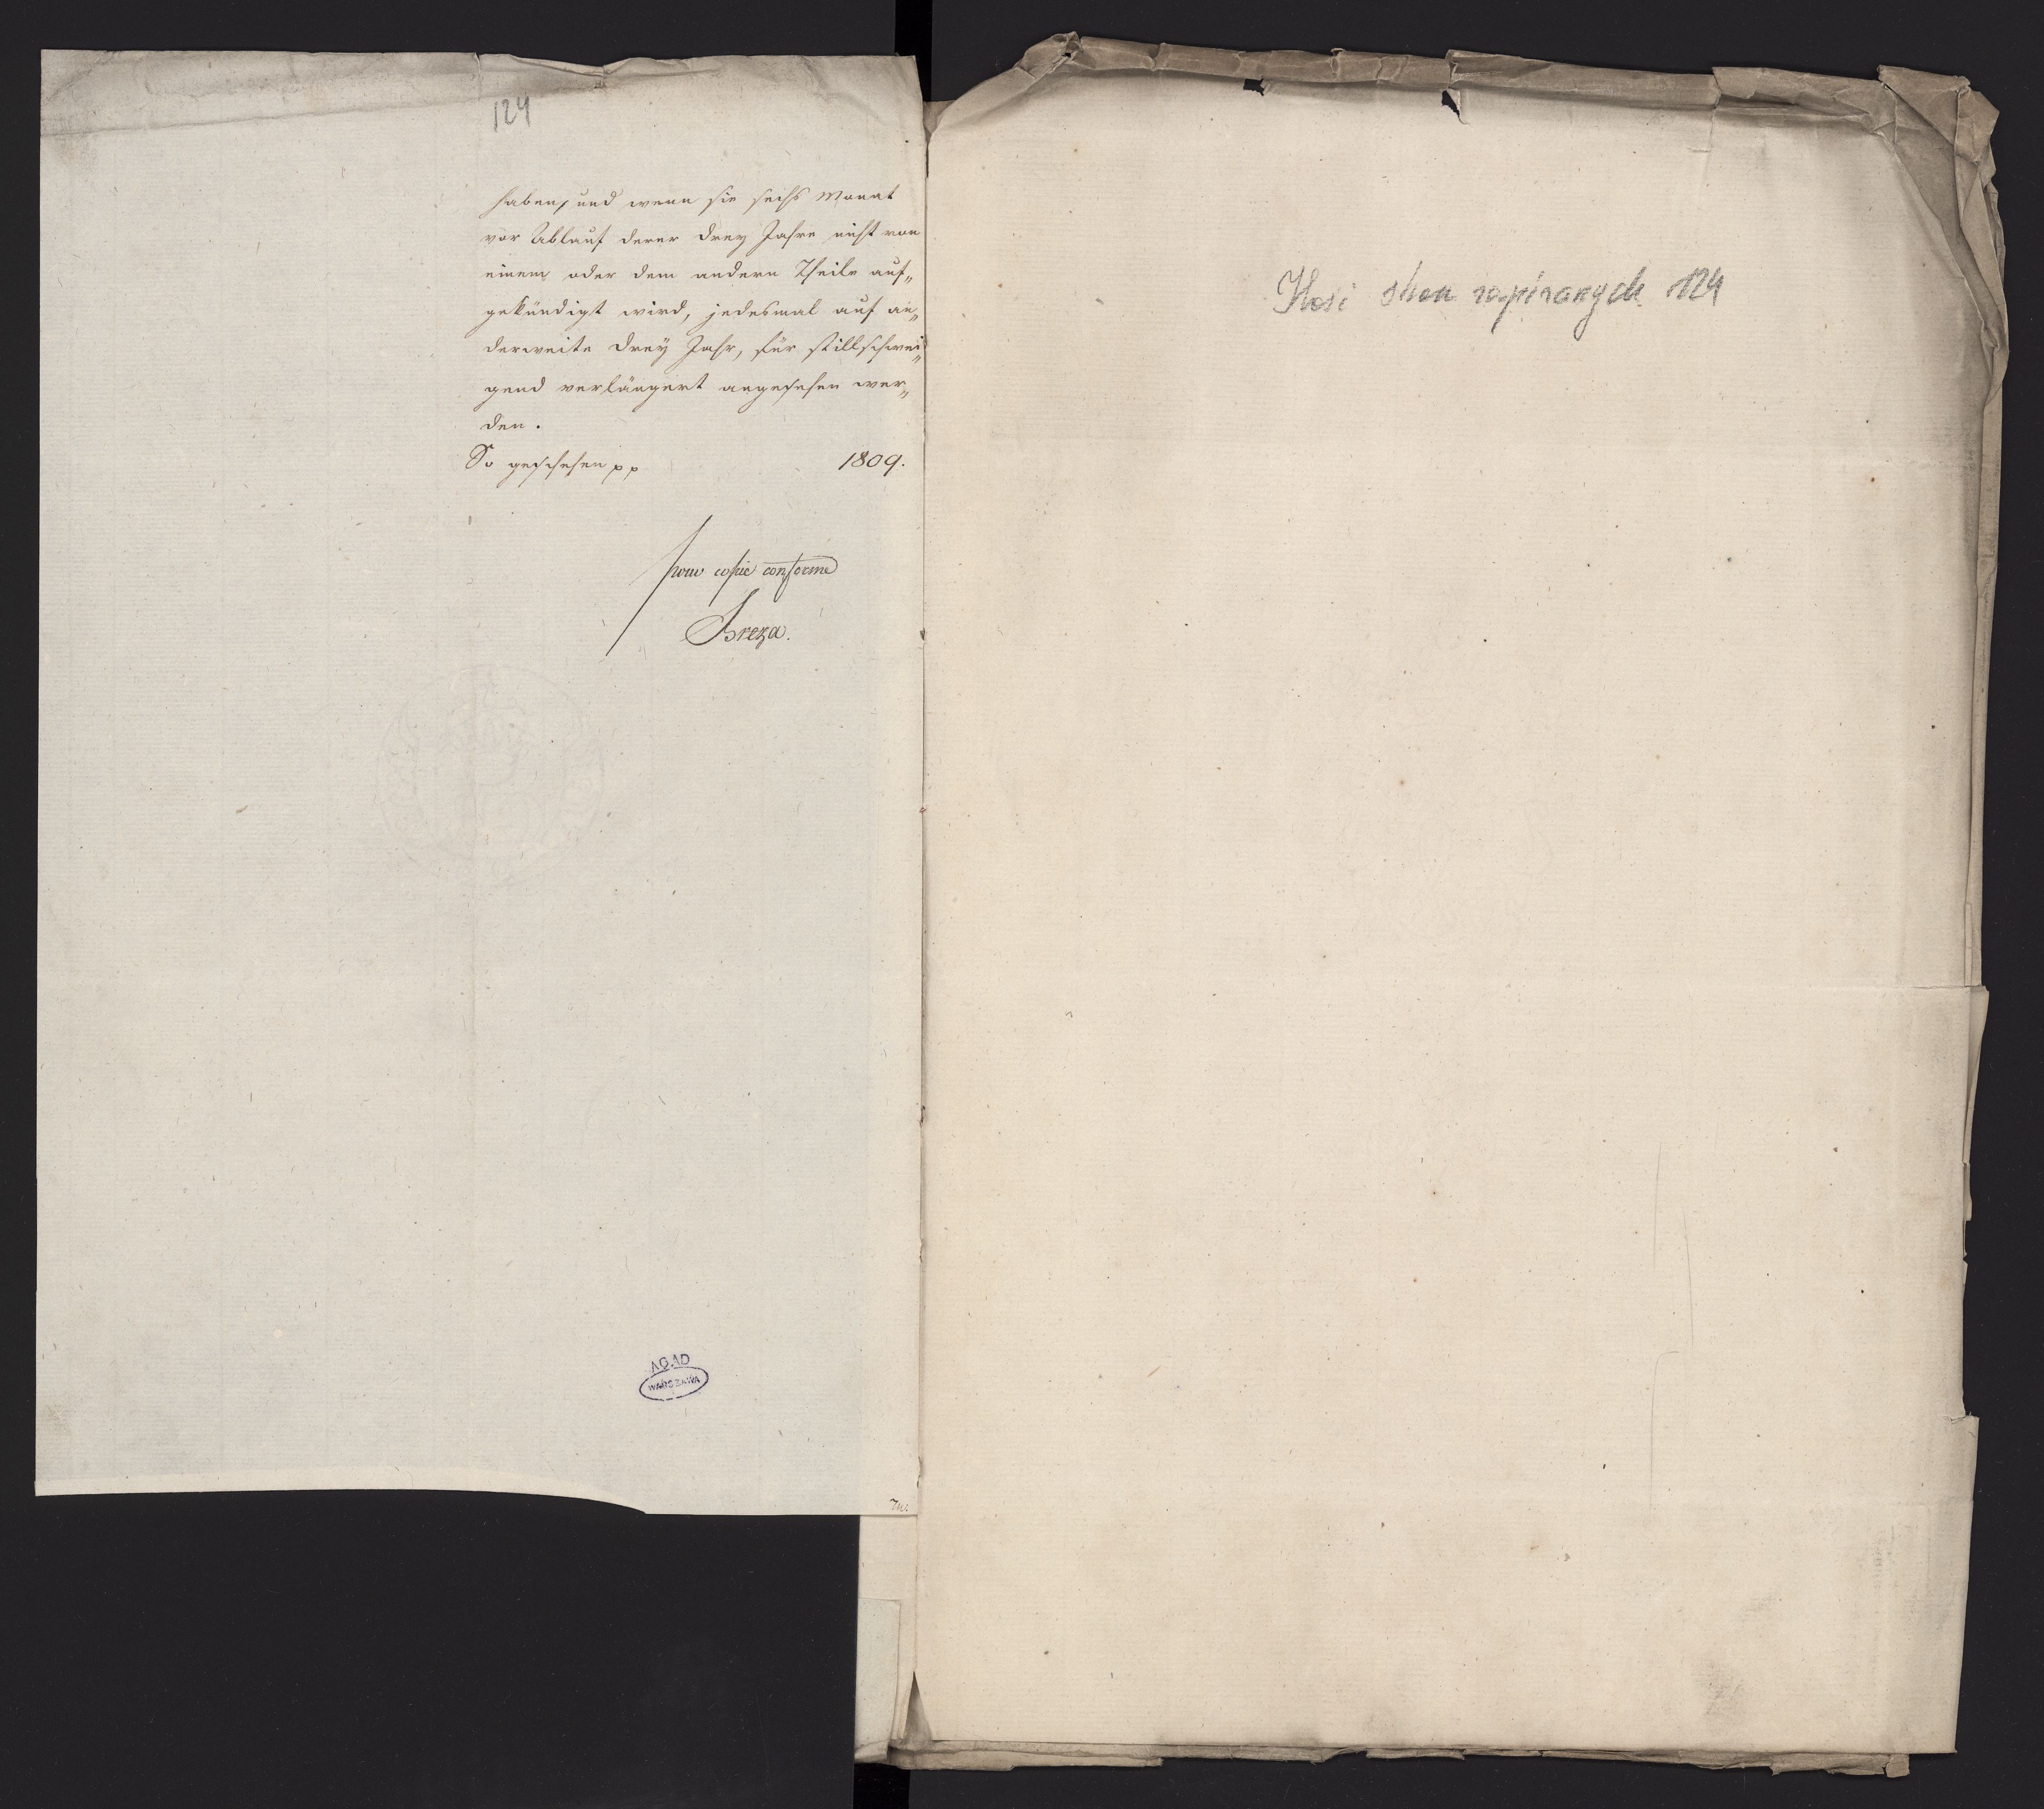 124
haben, und wenn sie sechs Monat
vor Ablauf derer drey Jahre nicht von
einem oder dem andern Theile auf„
gekündigt wird, jedesmal auf an„
derweite drey Jahr, für stillschwei„
gend verlängert angesehen wer„
den.
So geschehen pp 1809.
pour copie conforme
Breza.
AGAD
WARSZAWA
Ilość stron zapisanych 124